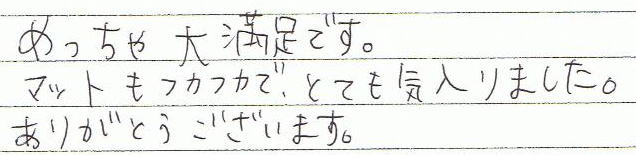 めっちゃ 大満足です。
マットもフカフカで、とても気入りました。
ありがとうございます。